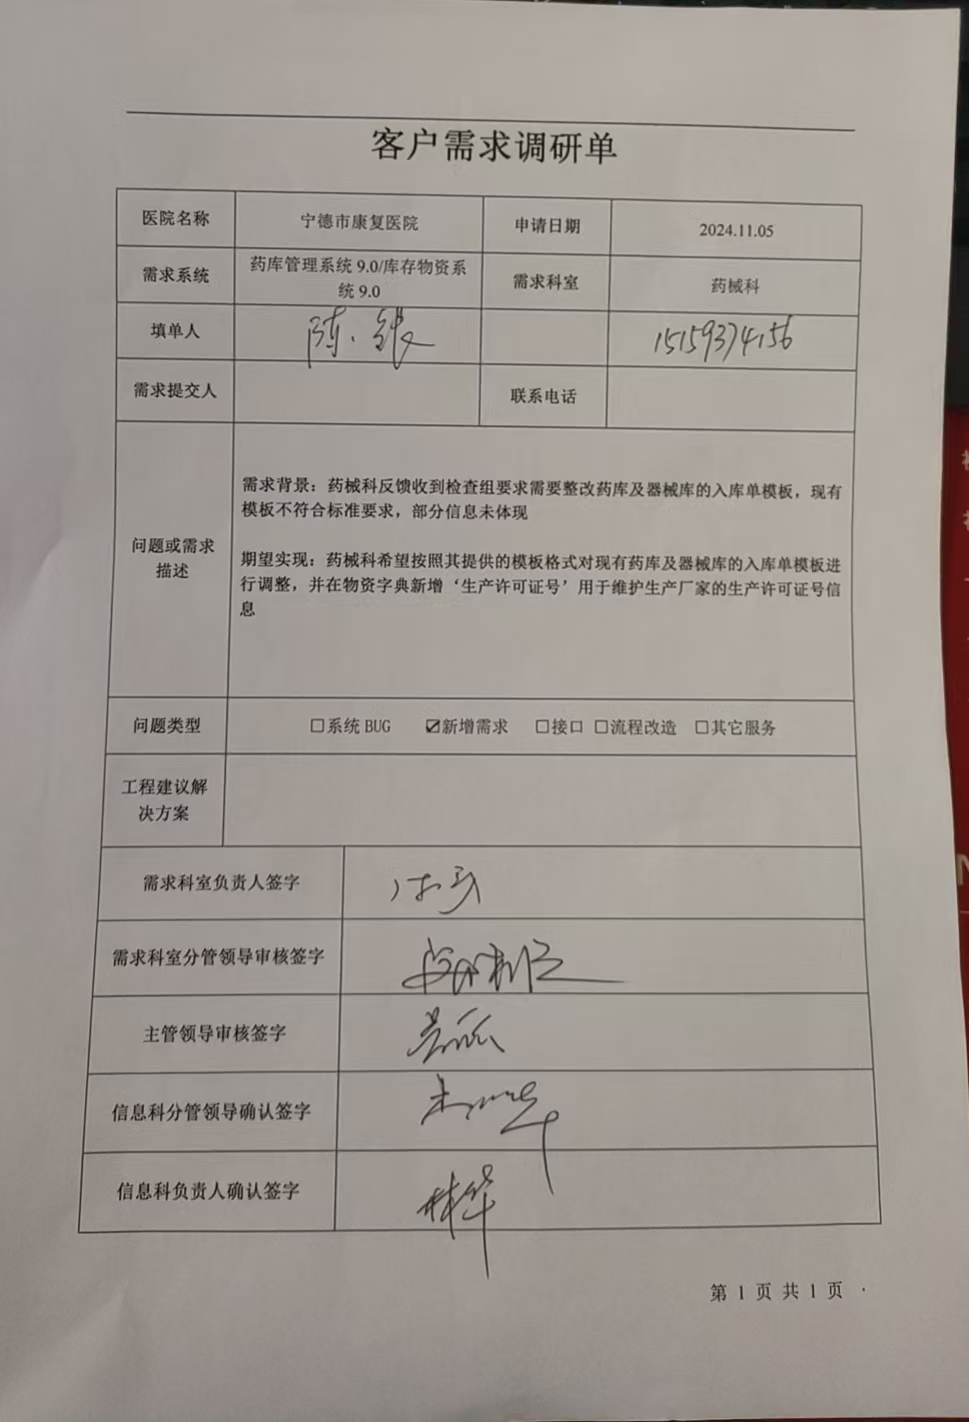 客户需求调研单
医院名称 宁德市康复医院 申请日期 2024.11.05
需求系统 药库管理系统 9.0/库存物资系
统 9.0 需求科室 药械科
填单人 陈 15159374156
需求提交人 联系电话
问题或需求
描述
需求背景：药械科反馈收到检查组要求需要整改药库及器械库的入库单模板，现有
模板不符合标准要求，部分信息未体现
期望实现：药械科希望按照其提供的模板格式对现有药库及器械库的入库单模板进
行调整，并在物资字典新增‘生产许可证号’用于维护生产厂家的生产许可证号信
息
问题类型 ☐系统 BUG ☑新增需求 ☐接口 ☐流程改造 ☐其它服务
工程建议解
决方案
需求科室负责人签字
需求科室分管领导审核签字
主管领导审核签字
信息科分管领导确认签字
信息科负责人确认签字
第 1 页 共 1 页